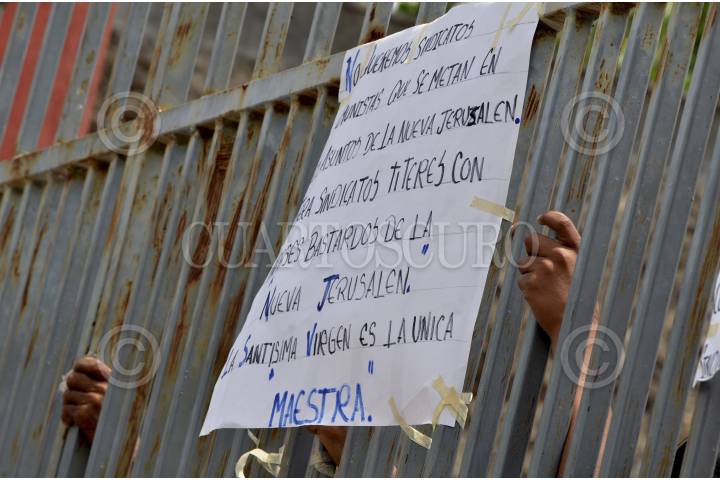 No QUEREMOS SINDICATOS
QUE SE METAN EN
ASUNTOS DE LA NUEVA JERUSALEN.
SINDICATOS TITERES CON
BASTARDOS DE LA
NUEVA JERUSALEN."
LA SANTISIMA VIRGEN ES LA UNICA
"MAESTRA."
© CUARTOSCURO ©